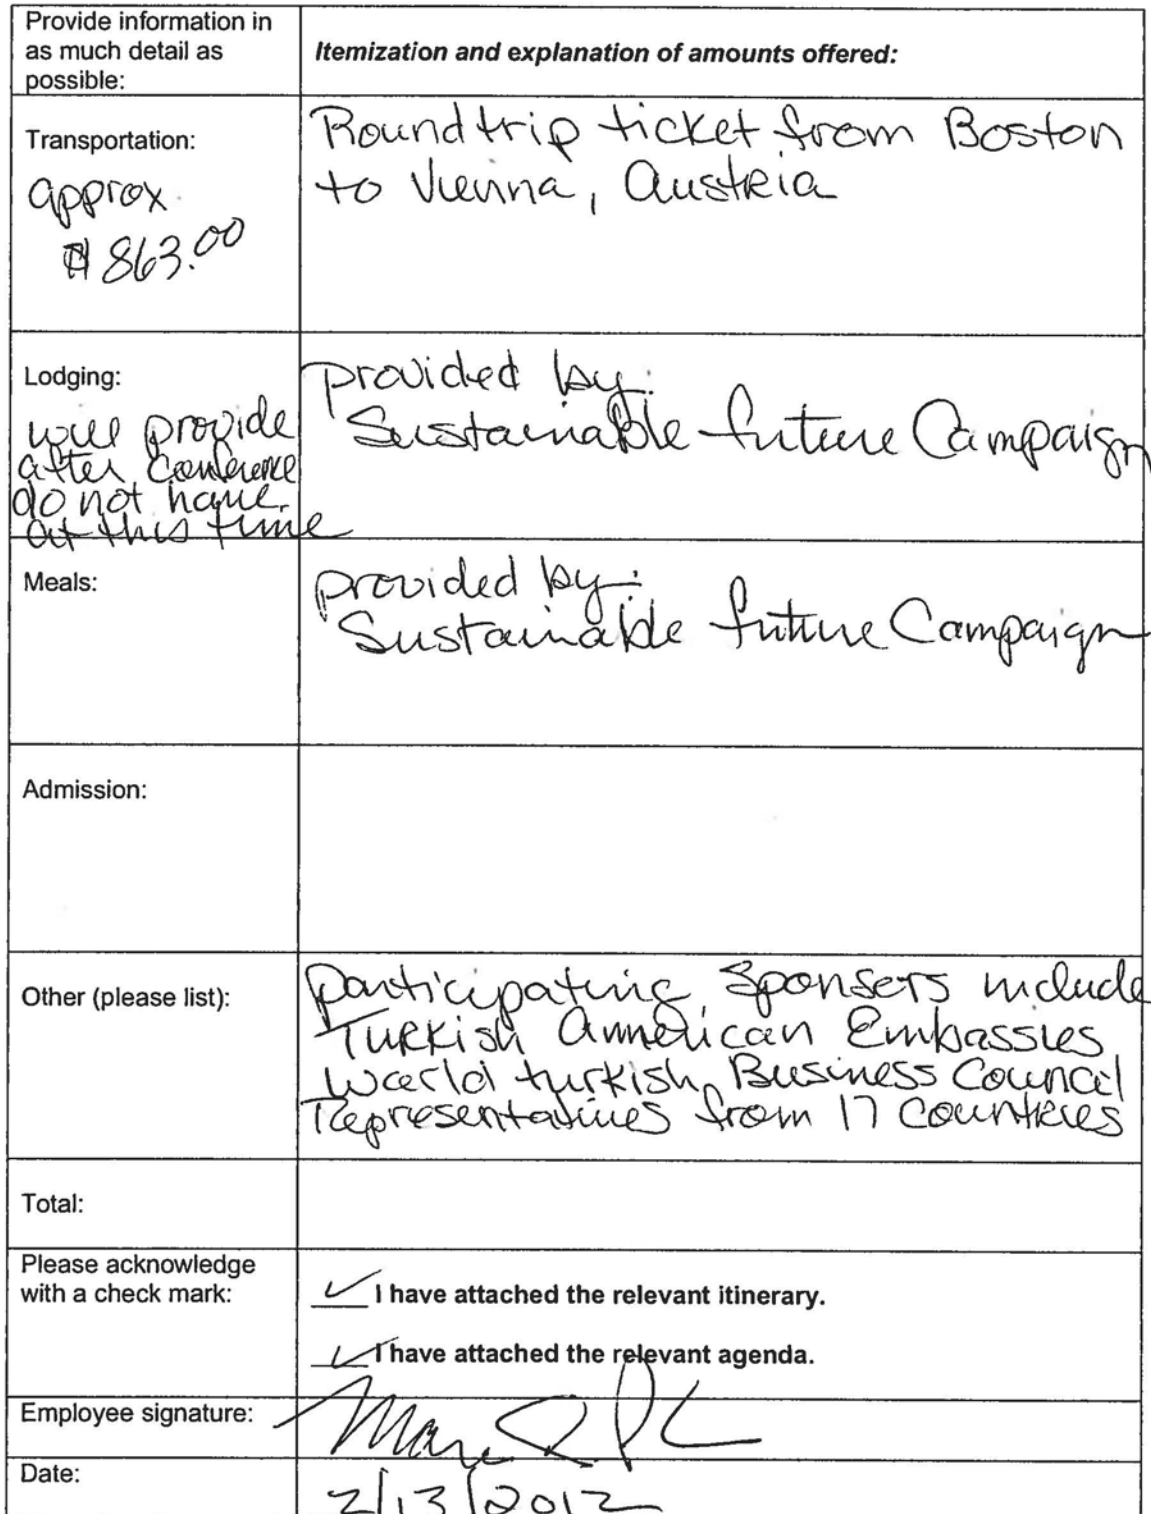 Provide information in
as much detail as
possible:
Itemization and explanation of amounts offered:
Transportation:
approx
$863.00
Roundtrip ticket from Boston
to Vienna, Austria
Lodging:
will provide
after Conference
do not have
at this time
provided by:
Sustainable future Campaign
Meals:
provided by:
Sustainable future Campaign
Admission:
Other (please list):
participating Sponsers include
Turkish American Embassies
World turkish Business Council
Representatives from 17 Countries
Total:
Please acknowledge
with a check mark:
✓ I have attached the relevant itinerary.
✓ I have attached the relevant agenda.
Employee signature:
Date:
2/13/2012